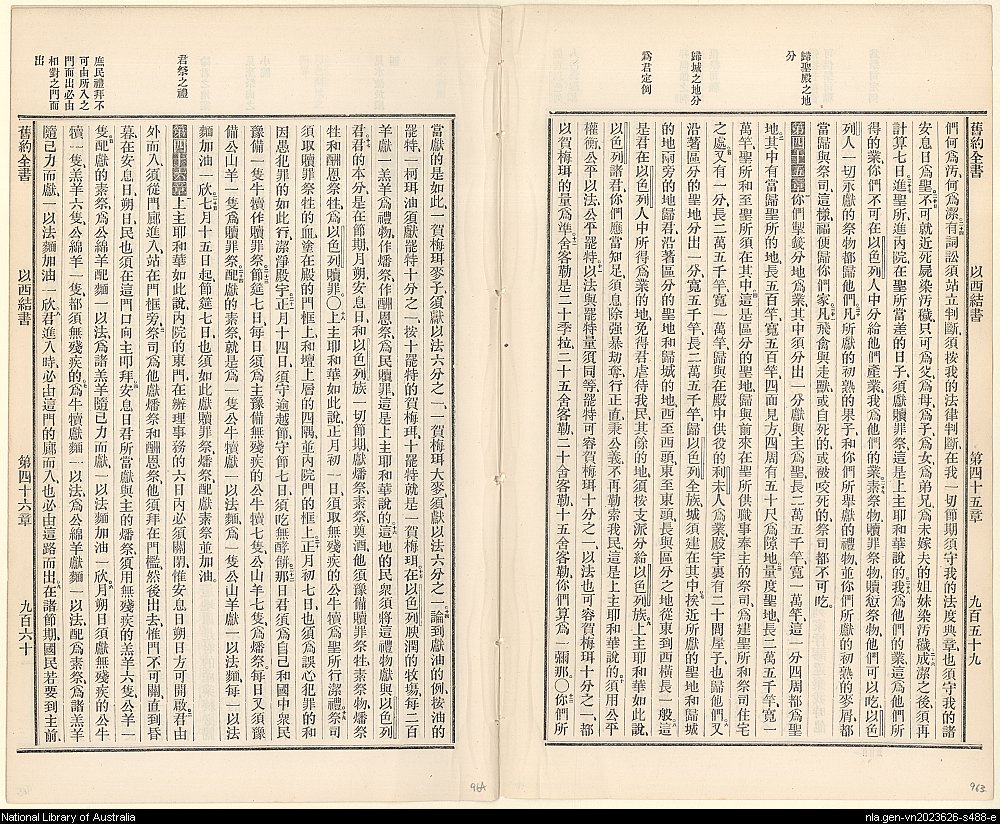 舊約全書
以西結書
第四十五章
九百五十九
歸聖殿之地分
歸城之地分
爲君定例
們何爲汚何爲潔有詞訟須站立判斷須按我的法律判斷在我一切節期須守我的法度典章也須守我的諸
安息日爲聖不可就近死屍染汚穢只可爲父爲母爲子爲女爲弟兄爲未嫁夫的姐妹染汚穢成潔之後須再
計算七日進聖所進內院在聖所當差的日子須獻贖罪祭這是上主耶和華說的我爲他們的業這爲他們所
得的業你們不可在以色列人中分給他們產業我爲他們的業素祭物贖罪祭物贖愆祭物他們可以吃以色
列人一切永獻的祭物都歸他們凡所獻的初熟的果子和你們所舉獻的禮物並你們所獻的初熟的麥屑都
當歸與祭司這樣福便歸你們家凡飛禽與走獸或自死的或被咬死的祭司都不可吃
第四十五章你們掣籤分地爲業其中須分出一分獻與主爲聖長二萬五千竿寬一萬竿這一分四周都爲聖
地其中有當歸聖所的地長五百竿寬五百竿四面見方四周有五十尺爲隙地量度聖地長二萬五千竿寬一
萬竿聖所和至聖所須在其中這是區分的聖地歸與前來在聖所供職事奉主的祭司爲建聖所和祭司住宅
之處又有一分長二萬五千竿寬一萬竿歸與在殿中供役的利未人爲業殿宇裏有二十間屋子也歸他們又
沿著區分的聖地分出一分寬五千竿長二萬五千竿歸以色列全族城須建在其中挨近所獻的聖地和歸城
的地兩旁的地歸君沿著區分的聖地和歸城的地西至西頭東至東頭長與區分之地從東到西橫長一般這
是君在以色列人中所得爲業的地免得君虐待我民其餘的地須按支派分給以色列族上主耶和華如此說
以色列諸君你們應當知足須息除强暴刼奪行正直秉公義不再勒索我民這是上主耶和華說的須用公平
權衡公平以法公平罷特以法與罷特量須同等罷特可容賀梅珥十分之一以法也可容賀梅珥十分之一都
以賀梅珥的量爲準舍客勒是二十季拉二十五舍客勒二十舍客勒十五舍客勒你們算爲一彌那〇你們所
當獻的是如此一賀梅珥麥子須獻以法六分之一一賀梅珥大麥須獻以法六分之一論到獻油的例按油的
罷特一柯珥油須獻罷特十分之一按十罷特的賀梅珥十罷特就是一賀梅珥在以色列腴潤的牧場每二百
羊獻一羔羊爲禮物作素祭燔祭作酬恩祭爲民贖罪這是上主耶和華說的這地的民衆須將這禮物獻與以色列
君君的本分是在節期月朔安息日和以色列族一切節期獻燔祭素祭奠酒他須豫備贖罪祭牲素祭物燔祭
牲和酬恩祭牲爲以色列贖罪〇上主耶和華如此說正月初一日須取無殘疾的公牛犢爲聖所行潔禮祭司
須取贖罪祭牲的血塗在殿的門框上和壇上層的四隅並內院門的框上正月初七日也須爲誤心犯罪的和
因愚犯罪的如此行潔淨殿宇正月十四日須守逾越節守節七日須吃無酵餅那日君須爲自己和國中衆民
豫備一隻牛犢作贖罪祭節筵七日每日須爲主豫備無殘疾的公牛犢七隻公山羊七隻爲燔祭每日又須豫
備公山羊一隻爲贖罪祭配獻的素祭就是爲一隻公牛犢獻一以法麵爲一隻公山羊獻一以法麵每一以法
麵加油一欣七月十五日起節筵七日也須如此獻贖罪祭燔祭配獻素祭並加油
第四十六章上主耶和華如此說內院的東門在辦理事務的六日內必須關閉惟安息日朔日方可開啟君由
外而入須從門廊進入站在門框旁祭司爲他獻燔祭和酬恩祭他須拜在門檻然後出去惟門不可關直到昏
暮在安息日朔日民也須在這門口向主叩拜安息日君所當獻與主的燔祭須用無殘疾的羔羊六隻公羊一
隻配獻的素祭爲公綿羊配麵一以法爲諸羔羊隨己力而獻一以法麵加油一欣月朔日須獻無殘疾的公牛
犢一隻羔羊六隻公綿羊一隻都須無殘疾的爲牛犢獻麵一以法爲公綿羊獻麵一以法配爲素祭爲諸羔羊
隨己力而獻一以法麵加油一欣君進入時必由這門的廊而入也必由這路而出在諸節期國民若要到主前
君祭之禮
庶民禮拜不可由所入之門而出必由相對之門而出
舊約全書
以西結書
第四十六章
九百六十
964
963
National Library of Australia
nla.gen-vn2023626-s488-e